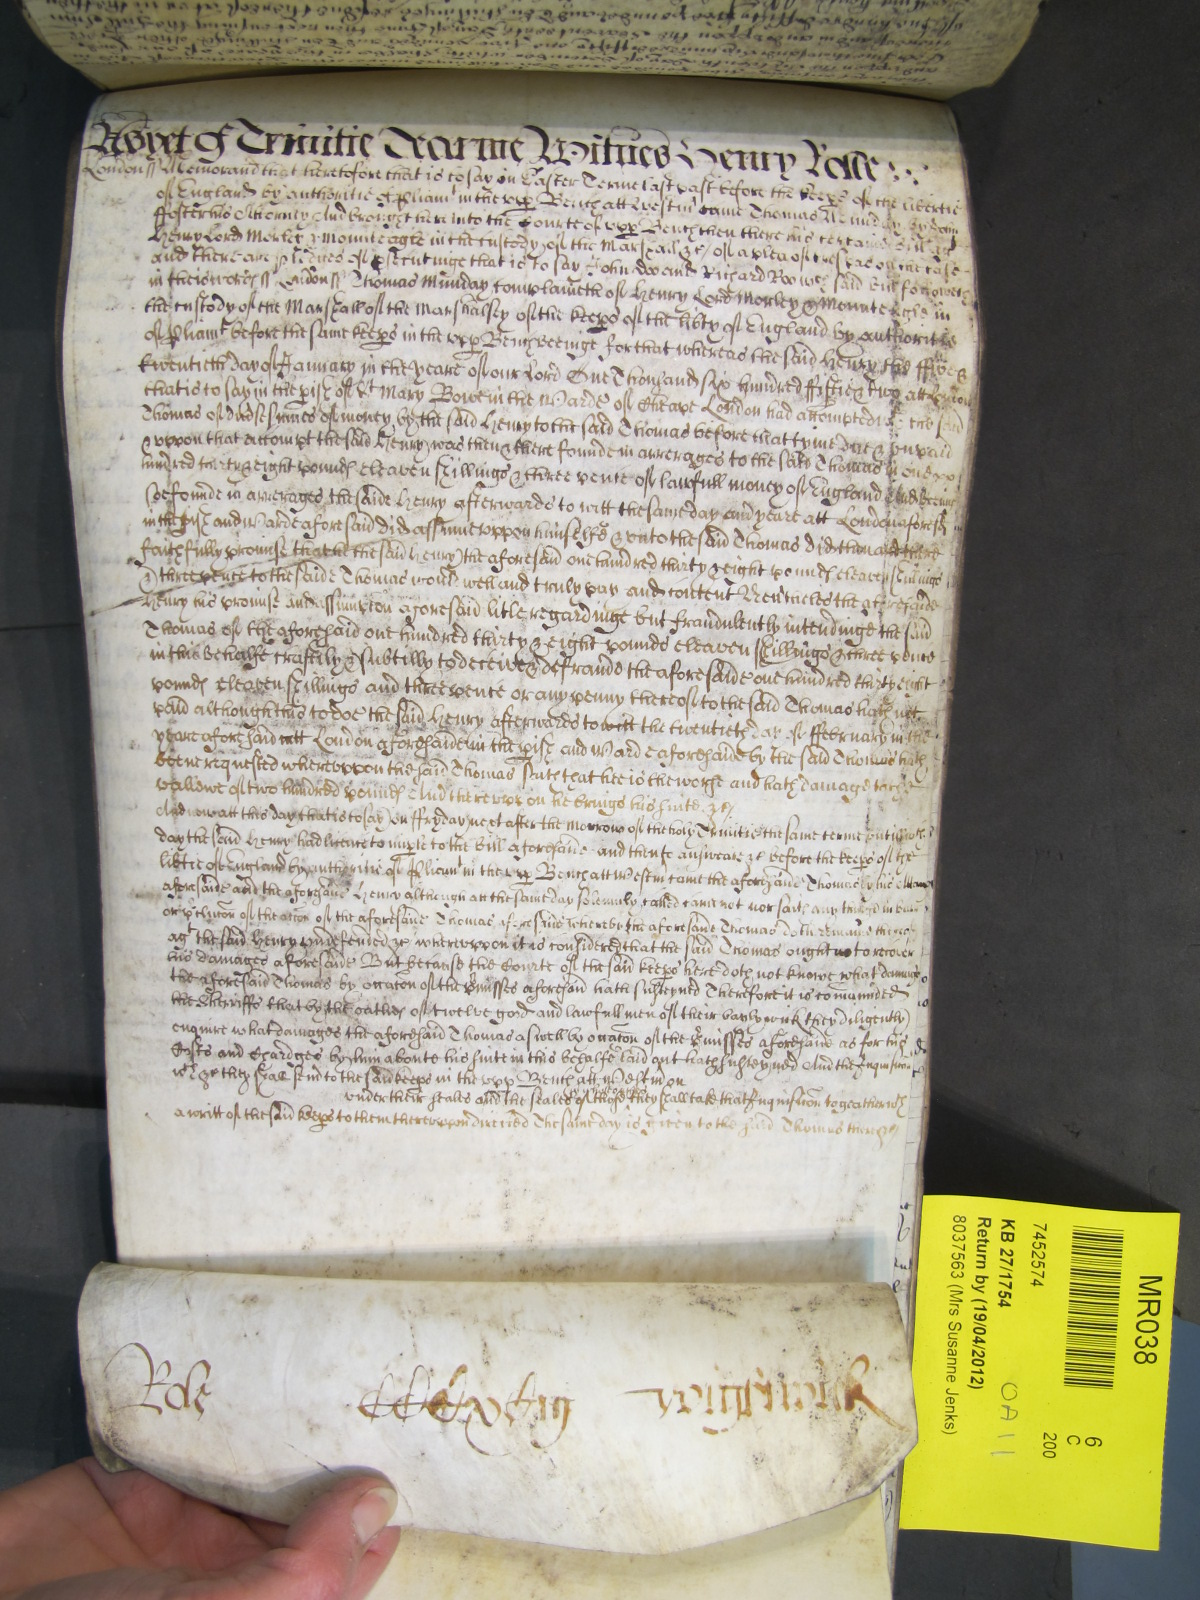 Yet of Trinitie Tearme Witnes Henry Rolle
London ss Memorand that heretofore that is to say in Easter Terme last past before the keeps of the libertie
of England by authoritie of Pliamt in the upp Bench att Westm came Thomas Munday by
his Attorney And brought here into the Courte of upp Bench then there his certaine Bill agt
Henry Lord Morley & Mounteagle in the custody of the Marshall &c of a plea of trespas on the case
and there are pledges of psecutinge that is to say John doo and Richard Roo wch said Bill followeth
in theis words ss London ss Thomas Munday complaineth of Henry Lord Morley & Mounteagle in
the custody of the Marshall of the Marshalsey of the keeps of the libty of England by authoritie
of Pliamt before the same keeps in the upp Bench beeinge for that whereas the said Henry the five &
twentieth day of January in the yeare of our Lord One Thousand six hundred fiftie & two att London
that is to say in the pish of St Mary Bowe in the Warde of Cheape London had accompted wth the said
Thomas of divse summes of money by the said Henry to the said Thomas before that tyme due & unpaid
& uppon that accompt the said Henry was then & there founde in arrerages to the said Thomas in one
hundred thirty & eight pounds eleaven shillings & three pence of lawfull money of England And beeinge
soe founde in arrerages the saide Henry afterwards to witt the same day and yeare att London aforesd
in the pish and Warde aforesaid did assume uppon himselfe & unto the said Thomas did then and there
faithfully promise that he the said Henry the aforesaid one hundred thirty & eight pounds eleaven shillings
& three pence to the saide Thomas would well and truly pay and content Neverthelesse the aforesaide
Henry his promise and assumpcon aforesaid litle regardinge but fraudulently intendinge the said
Thomas of the aforesaid one hundred thirty & eight pounds eleaven shillings & three pence
in this behalfe craftily & subtilly to deceive & defraude the aforesaide one hundred thirty eight
pounds eleaven shillings and three pence or any penny thereof to the said Thomas hath not
paid although this to doe the said Henry afterwards to witt the twentieth day of ffebruary in the
yeare aforesaid att London aforesaide in the pish and Warde aforesaide by the said Thomas hath
beene requested whereuppon the said Thomas saith that hee is the worse and hath damage to the
vallewe of two hundred pounds And thereuppon he brings his suite &c
And now att this day that is to say on ffryday next after the morrow of the holy Trinitie the same terme untill wch
day the said Henry had licence to imple to the Bill aforesaide and then to answeare &c before the keeps of the
libtie of England by authoritie of Pliamt in the upp Bench att Westm came the aforesaide Thomas by his Attorney
aforesaide and the aforesaide Henry although at the same day solemnly called came not nor saith any thinge in barr
or pclusion of the accon of the aforesaide Thomas aforesaid whereby the aforesaide Thomas doth remaine thereof
agt the said Henry undefended &c whereuppon it is considered that the said Thomas ought to recover
his damages aforesaide But because the Courte of the said keeps here doth not knowe what damage
the aforesaid Thomas by occation of the pmisses aforesaid hath susteyned Therefore it is comanded
the Sherriffs that by the oathes of twelve good and lawfull men of their baylywick they diligently
enquire what damages the aforesaid Thomas aswell by occation of the pmisses aforesaid as for his
Costs and Chardges by him aboute his suite in this behalfe laid out hath susteyned And the Inquisition
wch &c they shall send to the said keeps in the upp Bench att Westm on
under their seales and the seales of those by whose oathes they shall take that Inquisition togeather wth
a writt of the said keeps to them thereuppon directed The same day is given to the said Thomas there &c
Rolle CCCCxCiij
MR038
6
C
200
7452574
KB 27/1754
Return by (19/04/2012)
8037563 (Mrs Susanne Jenks)